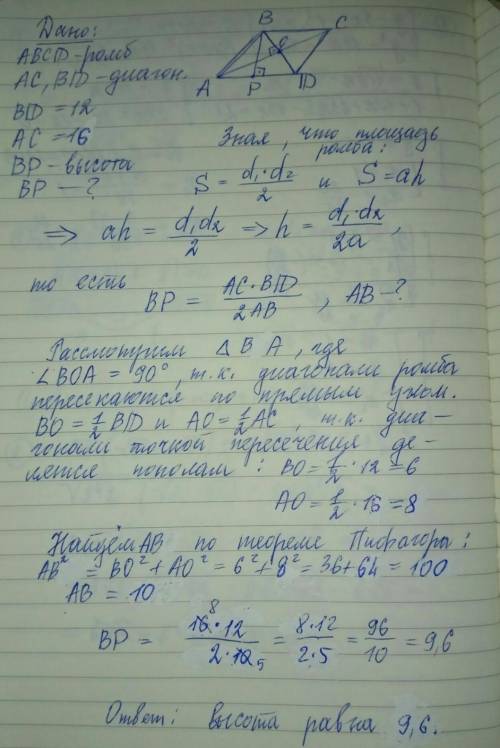 Дано:
ABCD - ромб
AC, BD - диагон.
BD = 12
AC = 16
BP - высота
BP — ?
B C
A P D
Зная, что площадь
ромба:
S = d₁·d₂/2 и S = ah
⇒ ah = d₁d₂/2 ⇒ h = d₁·d₂/2a ,
то есть
BP = AC·BD/2AB , AB - ?
Рассмотрим △ B A , где
∠BOA = 90°, т.к. диагонали ромба
пересекаются по прямым углом.
BO = 1/2 BD и AO = 1/2 AC , т.к. диа-
гонали точкой пересечения де-
лятся пополам : BO = 1/2 · 12 = 6
AO = 1/2 · 16 = 8
Найдём AB по теореме Пифагоры :
AB² = BO² + AO² = 6² + 8² = 36 + 64 = 100
AB = 10
BP = 16 8 · 12/2 · 10 5 = 8·12/2·5 = 96/10 = 9,6
Ответ: высота равна 9,6.